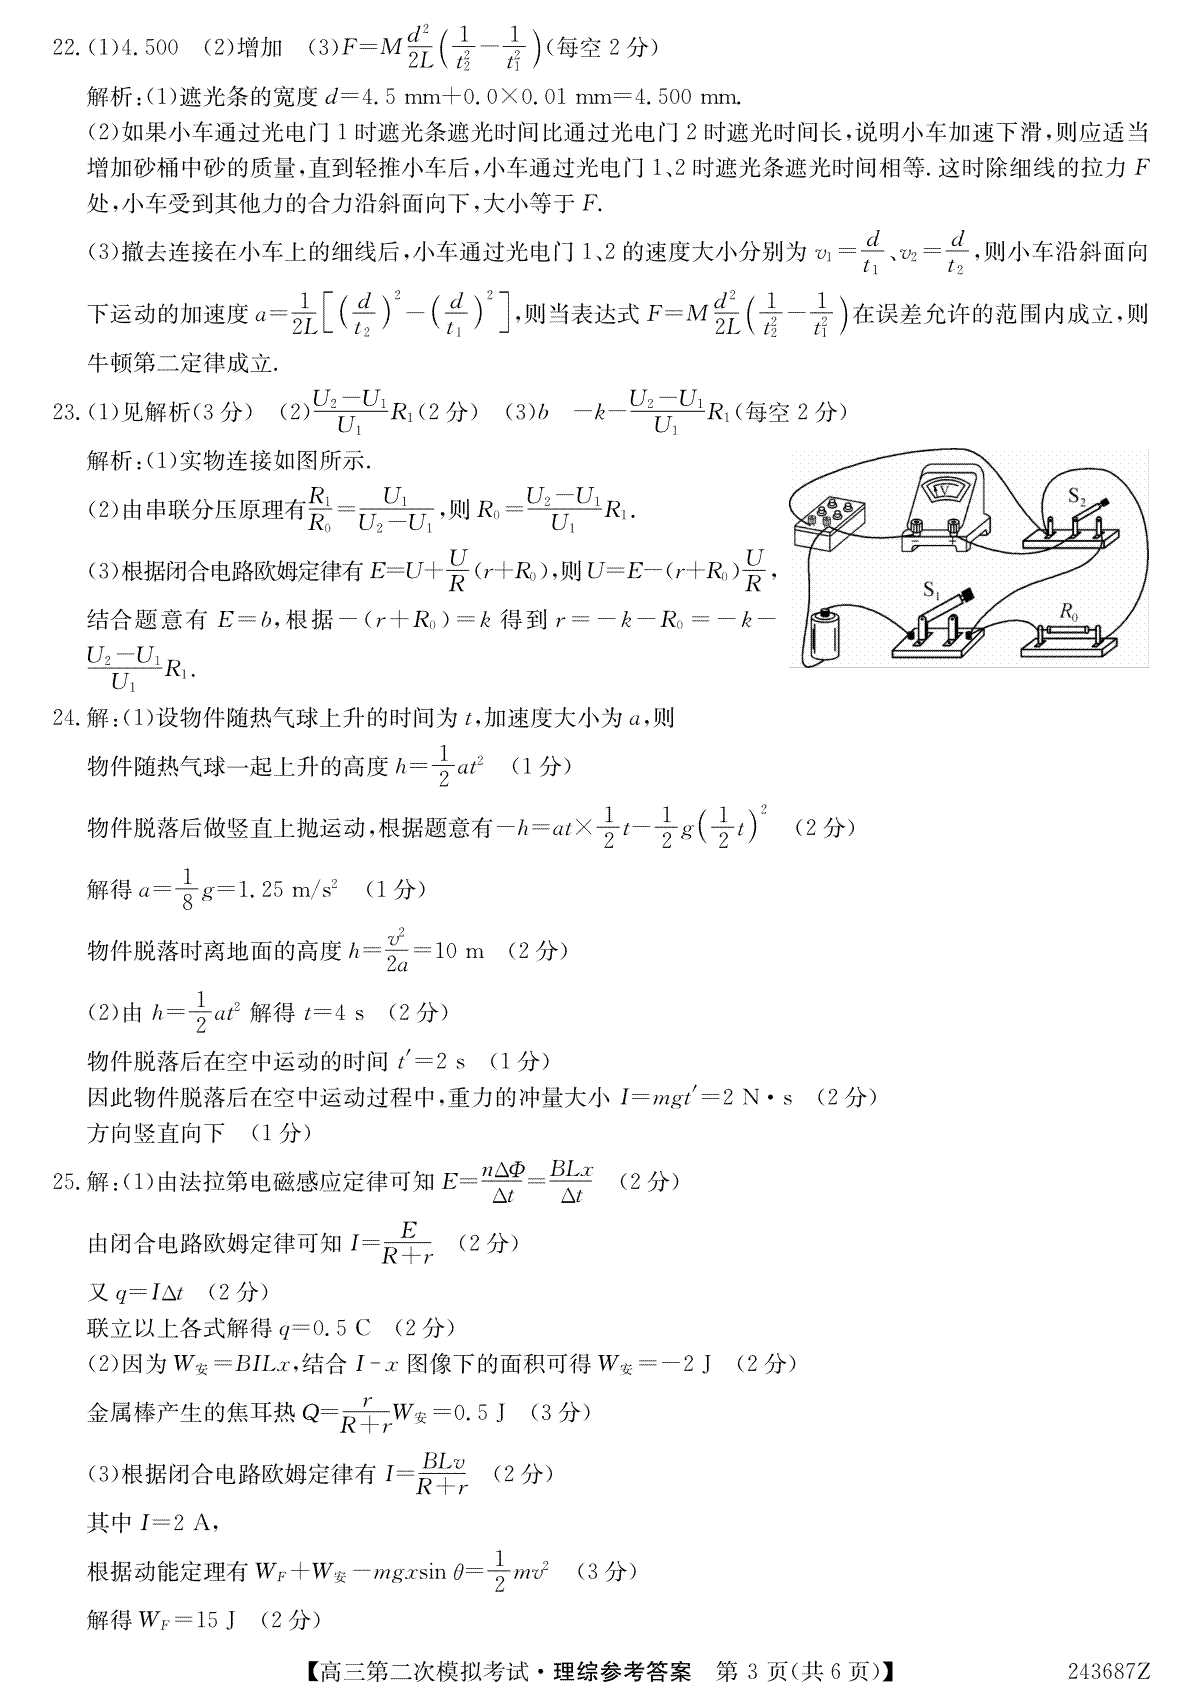 22. (1)4.500 (2)增加 (3)F=M\frac{d^2}{2L}(\frac{1}{t_2^2}-\frac{1}{t_1^2})(每空2分)
解析:(1)遮光条的宽度d=4.5 mm+0.0×0.01 mm=4.500 mm.
(2)如果小车通过光电门1时遮光条遮光时间比通过光电门2时遮光时间长,说明小车加速下滑,则应适当
增加砂桶中砂的质量,直到轻推小车后,小车通过光电门1、2时遮光条遮光时间相等.这时除细线的拉力F
处,小车受到其他力的合力沿斜面向下,大小等于F.
(3)撤去连接在小车上的细线后,小车通过光电门1、2的速度大小分别为v₁=\frac{d}{t_1}、v₂=\frac{d}{t_2},则小车沿斜面向
下运动的加速度a=\frac{1}{2L}[(\frac{d}{t_2})^2-(\frac{d}{t_1})^2],则当表达式F=M\frac{d^2}{2L}(\frac{1}{t_2^2}-\frac{1}{t_1^2})在误差允许的范围内成立,则
牛顿第二定律成立.
23. (1)见解析(3分) (2)\frac{U_2-U_1}{U_1}R₁(2分) (3)b -k-\frac{U_2-U_1}{U_1}R₁(每空2分)
解析:(1)实物连接如图所示.
(2)由串联分压原理有\frac{R_1}{R_0}=\frac{U_1}{U_2-U_1},则R₀=\frac{U_2-U_1}{U_1}R₁.
(3)根据闭合电路欧姆定律有E=U+\frac{U}{R}(r+R₀),则U=E-(r+R₀)\frac{U}{R},
结合题意有E=b,根据-(r+R₀)=k得到r=-k-R₀=-k-
\frac{U_2-U_1}{U_1}R₁.
V
S₂
S₁
R₀
24. 解:(1)设物件随热气球上升的时间为t,加速度大小为a,则
物件随热气球一起上升的高度h=\frac{1}{2}at² (1分)
物件脱落后做竖直上抛运动,根据题意有-h=at×\frac{1}{2}t-\frac{1}{2}g(\frac{1}{2}t)^2 (2分)
解得a=\frac{1}{8}g=1.25 m/s² (1分)
物件脱落时离地面的高度h=\frac{v^2}{2a}=10 m (2分)
(2)由h=\frac{1}{2}at²解得t=4 s (2分)
物件脱落后在空中运动的时间t′=2 s (1分)
因此物件脱落后在空中运动过程中,重力的冲量大小I=mgt′=2 N·s (2分)
方向竖直向下 (1分)
25. 解:(1)由法拉第电磁感应定律可知E=\frac{nΔΦ}{Δt}=\frac{BLx}{Δt} (2分)
由闭合电路欧姆定律可知I=\frac{E}{R+r} (2分)
又q=IΔt (2分)
联立以上各式解得q=0.5 C (2分)
(2)因为W安=BILx,结合I-x图像下的面积可得W安=-2 J (2分)
金属棒产生的焦耳热Q=\frac{r}{R+r}W安=0.5 J (3分)
(3)根据闭合电路欧姆定律有I=\frac{BLv}{R+r} (2分)
其中I=2 A,
根据动能定理有W_F+W安-mgxsin θ=\frac{1}{2}mv² (3分)
解得W_F=15 J (2分)
【高三第二次模拟考试·理综参考答案 第3页(共6页)】 243687Z